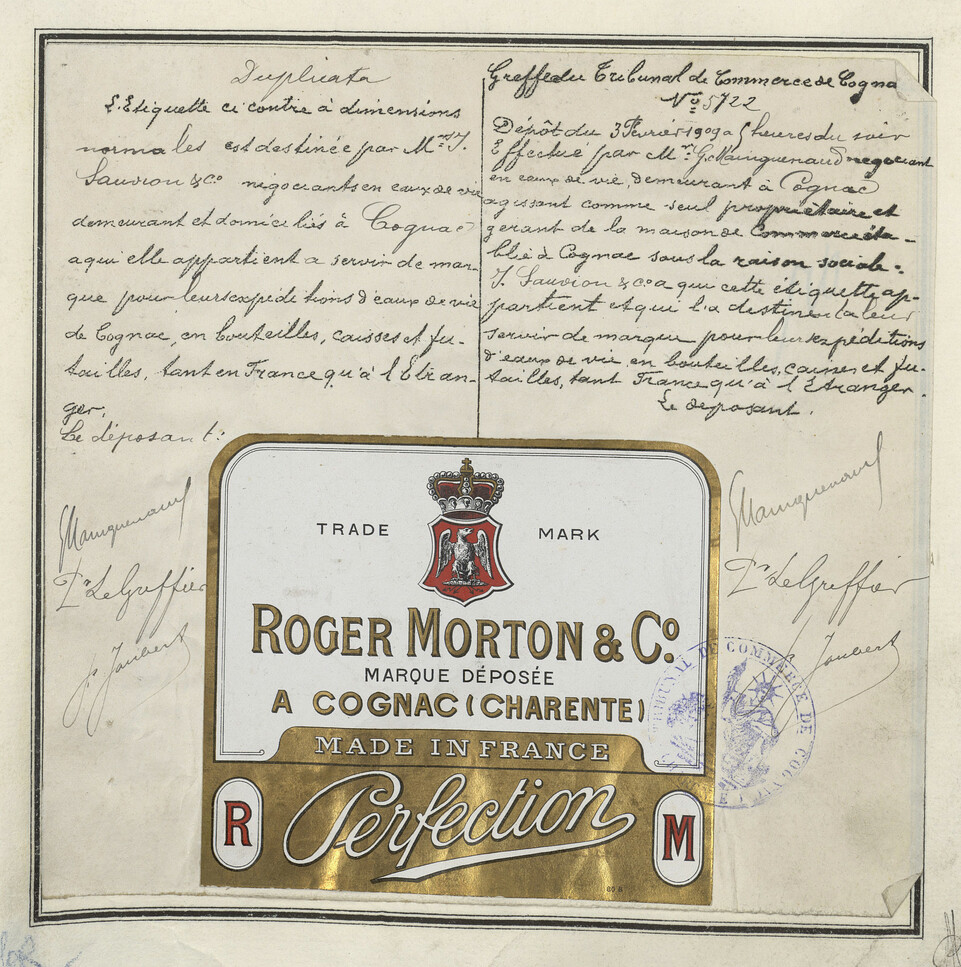 Duplicata
L'Etiquette ci contre à dimensions
normales est destinée par Mrs J.
Sauvion & Co négociants en eaux de vie
demeurant et domiciliés à Cognac
a qui elle appartient a servir de mar-
que pour leurs expéditions d'eaux de vie
de Cognac, en bouteilles, caisses et fu-
tailles, tant en France qu'à l'Etran-
ger.
Le déposant:
GMainguenaud
Pr Le Greffier
Joubert
Greffe du Tribunal de Commerce de Cogna
No 5722
Dépôt du 3 Février 1909 a 5 heures du soir
Effectué par Mr G. Mainguenaud négociant
en eaux de vie, demeurant à Cognac
agissant comme seul propriétaire et
gerant de la maison de Commerce éta-
blie à Cognac sous la raison sociale:
J. Sauvion & Co a qui cette étiquette ap-
partient et qui l'a destinée à leur
servir de marque pour leurs expéditions
d'eaux de vie en bouteilles, caisses et fu-
tailles, tant France qu'à l'Etranger.
Le deposant.
GMainguenaud
Pr Le Greffier
Joubert
TRADE MARK
ROGER MORTON & Co.
MARQUE DÉPOSÉE
A COGNAC (CHARENTE)
MADE IN FRANCE
R Perfection M
TRIBUNAL DE COMMERCE DE COGNAC